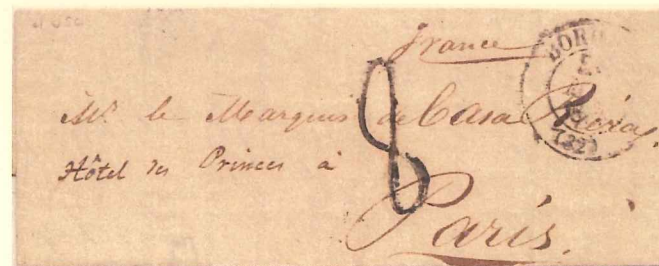 France
BORD
Mr le Marquis de Casa Riera,
(32)
Hôtel des Princes à
8
Paris.